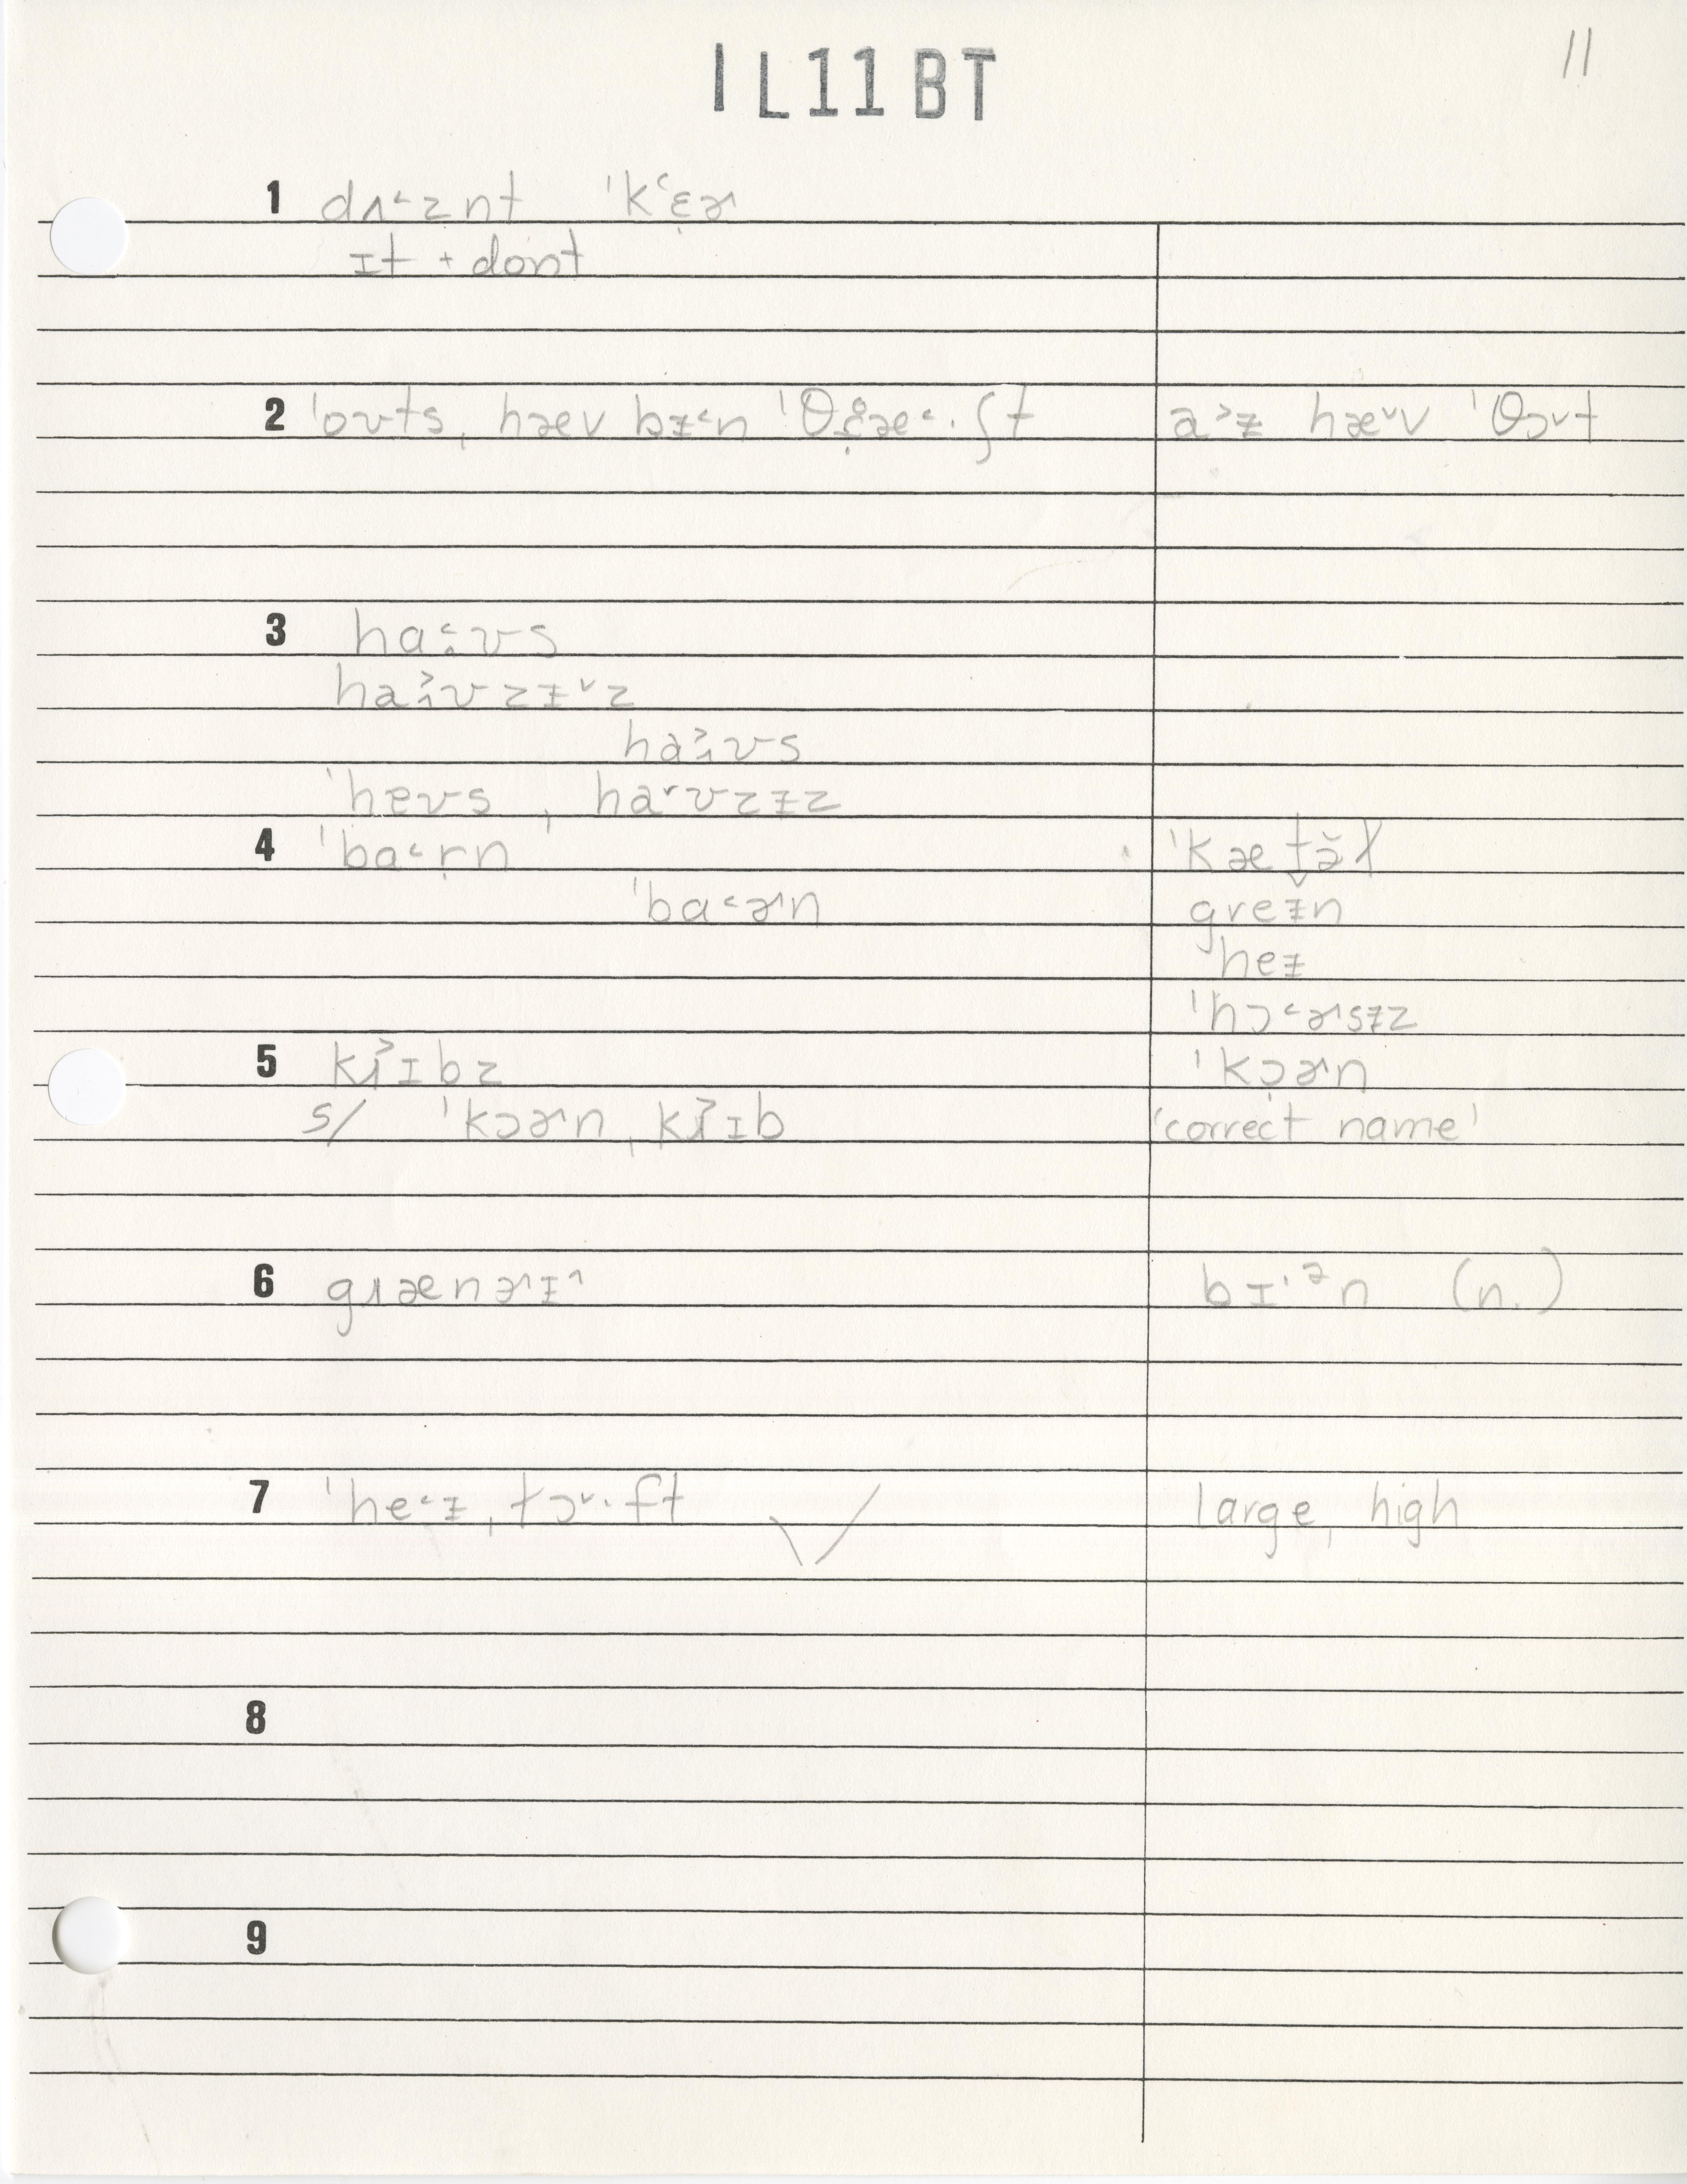 IL11BT
11
1 dʌ˂znt ˈk˓ɛ̣ɚ
ɪt + dont
2 ˈoʊts, hæv bᵻ˂n ˈθɹ̥æ˂·ʃt
aʾᵻ hæ˅v ˈθɔ˅t
3 ha˂:ʊs
haʊzᵻ˅z
haʊs
ˈhɐʊs, ha˅ʊzᵻz
4 ˈba˂ṛn
ˈkæt̬ə̆ɫ
ˈba˂ɚn
greᵻn
ˈheᵻ
ˈhɔ˂ɚsᵻz
5 kɹɪbz
ˈkɔ̣ɚn
s/ ˈkɔɚn, kɹɪb
'correct name'
6 gɹænɚɪ^
bɪ·ᵊn (n.)
7 ˈhe˂ᵻ, tɔ˅·ft ✓
large, high
8
9